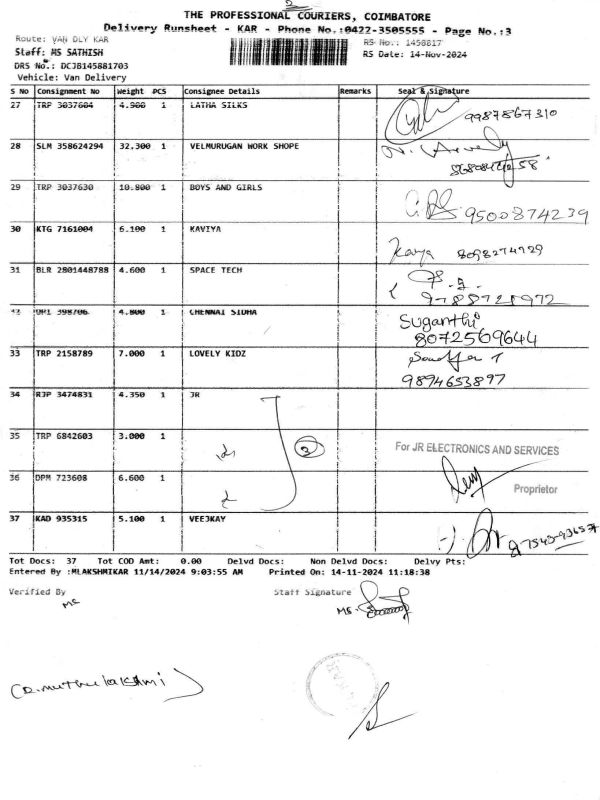 THE PROFESSIONAL COURIERS, COIMBATORE
Delivery Runsheet - KAR - Phone No.:0422-3505555 - Page No.:3
Route: VAN DLY KAR
RS No.: 1458817
Staff: MS SATHISH
RS Date: 14-Nov-2024
DRS No.: DCJB145881703
Vehicle: Van Delivery
S No Consignment No Weight PCS Consignee Details Remarks Seal & Signature
27 TRP 3037604 4.900 1 LATHA SILKS 9987867310
28 SLM 358624294 32.300 1 VELMURUGAN WORK SHOPE
29 TRP 3037630 10.800 1 BOYS AND GIRLS 9500874239
30 KTG 7161004 6.100 1 KAVIYA
31 BLR 2801448788 4.600 1 SPACE TECH
398706 4.800 1 CHENNAI SIDHA Suganthi
8072569644
33 TRP 2158789 7.000 1 LOVELY KIDZ
9894653897
34 RJP 3474831 4.350 1 JR
35 TRP 6842603 3.000 1 For JR ELECTRONICS AND SERVICES
36 DPM 723608 6.600 1 Proprietor
37 KAD 935315 5.100 1 VEEJKAY
Tot Docs: 37 Tot COD Amt: 0.00 Delvd Docs: Non Delvd Docs: Delvy Pts:
Entered By :MLAKSHMIKAR 11/14/2024 9:03:55 AM Printed On: 14-11-2024 11:18:38
Verified By Staff Signature
(D.muthulakshmi)